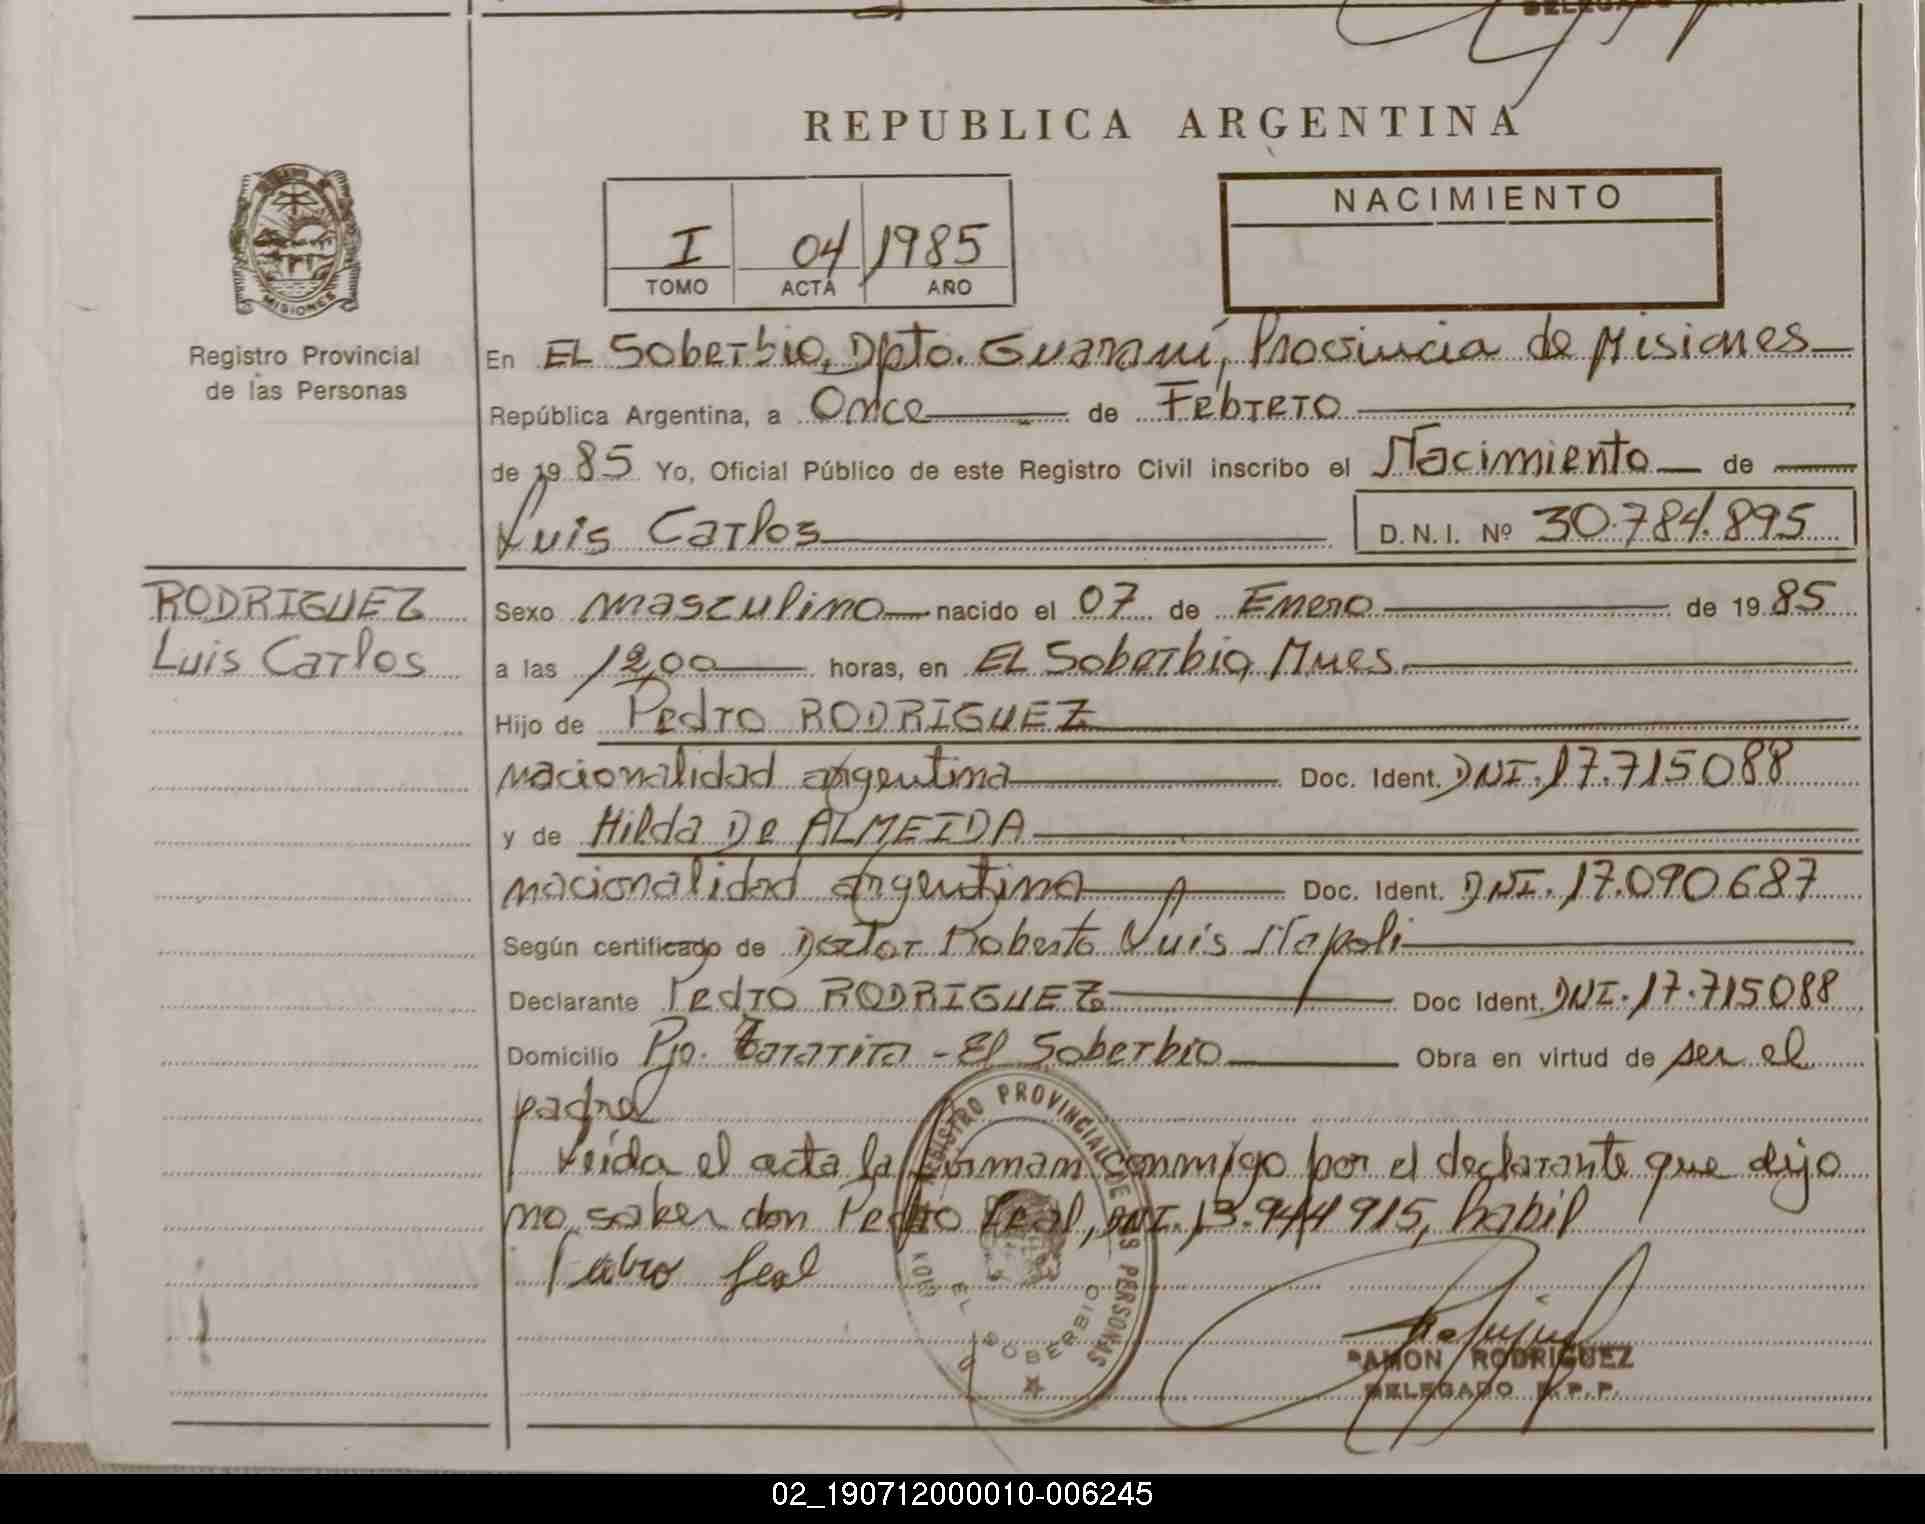 REPUBLICA ARGENTINA
NACIMIENTO
I 04 1985
TOMO ACTA AÑO
MISIONES
Registro Provincial
de las Personas
En EL Soberbio, Dpto. Guaraní, Provincia de Misiones
República Argentina, a Once de Febrero
de 19 85 Yo, Oficial Público de este Registro Civil inscribo el Nacimiento de
Luis Carlos D.N.I. Nº 30.784.895
RODRIGUEZ
Luis Carlos
Sexo masculino nacido el 07 de Enero de 19 85
a las 12,00 horas, en EL Soberbio, Mnes.
Hijo de Pedro RODRIGUEZ
nacionalidad argentina Doc. Ident. DNI. 17.715088
y de Hilda De ALMEIDA
nacionalidad argentina Doc. Ident. DNI. 17.090687
Según certificado de Doctor Roberto Luis Napoli
Declarante Pedro RODRIGUEZ Doc Ident. DNI. 17.715088
Domicilio Pjo. - El Soberbio Obra en virtud de ser el
padre
Leída el acta la firman conmigo por el declarante que dijo
no saber don Pedro Leal, DNI. 13.944915, habil
Leal
REGISTRO PROVINCIAL DE LAS PERSONAS
EL SOBERBIO
RAMON RODRIGUEZ
DELEGADO R.P.P.
02_190712000010-006245